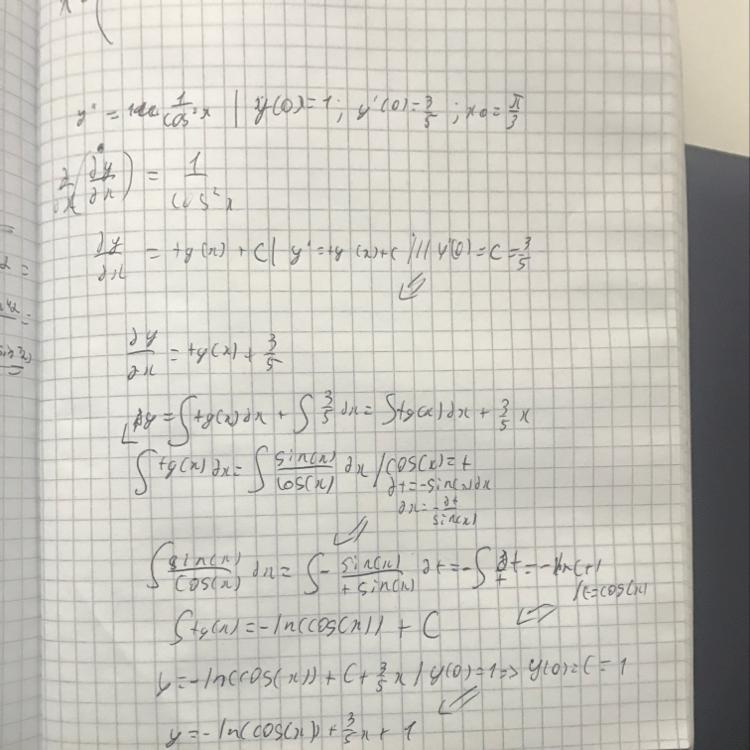 y'' = 1/cos²x | y(0)=1; y'(0)=3/5; x0=π/3
∂/∂x(∂y/∂x) = 1/cos²x
∂y/∂x = tg(x) + C | y'=tg(x)+C // y'(0)=C=3/5
∂y/∂x = tg(x) + 3/5
y = ∫tg(x)∂x + ∫3/5 ∂x = ∫tg(x)∂x + 3/5 x
∫tg(x)∂x = ∫sin(x)/cos(x) ∂x / cos(x)=t
∂t=-sin(x)∂x
∂x=-∂t/sin(x)
∫sin(x)/cos(x) ∂x = ∫-sin(x)/t sin(x) ∂t = -∫∂t/t = -ln(t)
/t=cos(x)
∫tg(x) = -ln(cos(x)) + C
y=-ln(cos(x)) + C + 3/5 x / y(0)=1 => y(0)=C=1
y=-ln(cos(x)) + 3/5 x + 1